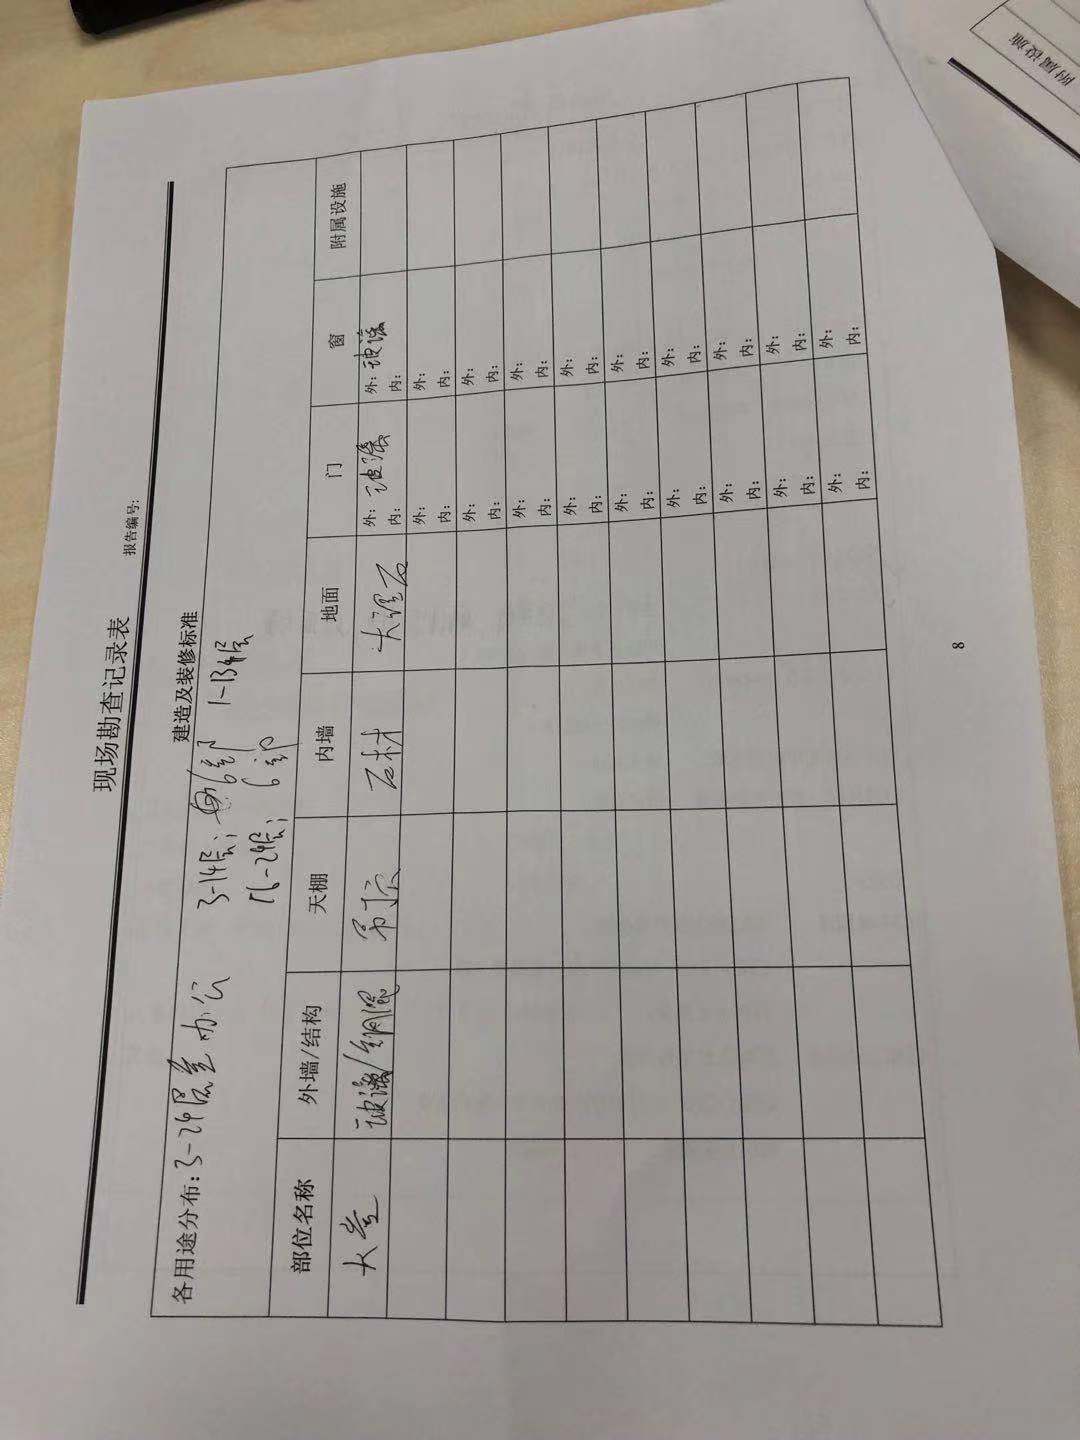 现场勘查记录表
报告编号:
建造及装修标准
各用途分布: 3-24层是办公 3-14层; 6部 1-13层
16-24层; 6部
部位名称 外墙/结构 天棚 内墙 地面 门 窗 附属设施
大堂 玻璃/钢混 吊顶 石材 大理石 外: 玻璃 外: 玻璃
内: 内:
外: 外:
内: 内:
外: 外:
内: 内:
外: 外:
内: 内:
外: 外:
内: 内:
外: 外:
内: 内:
外: 外:
内: 内:
外: 外:
内: 内:
外: 外:
内: 内:
外: 外:
内: 内:
8
附属设施